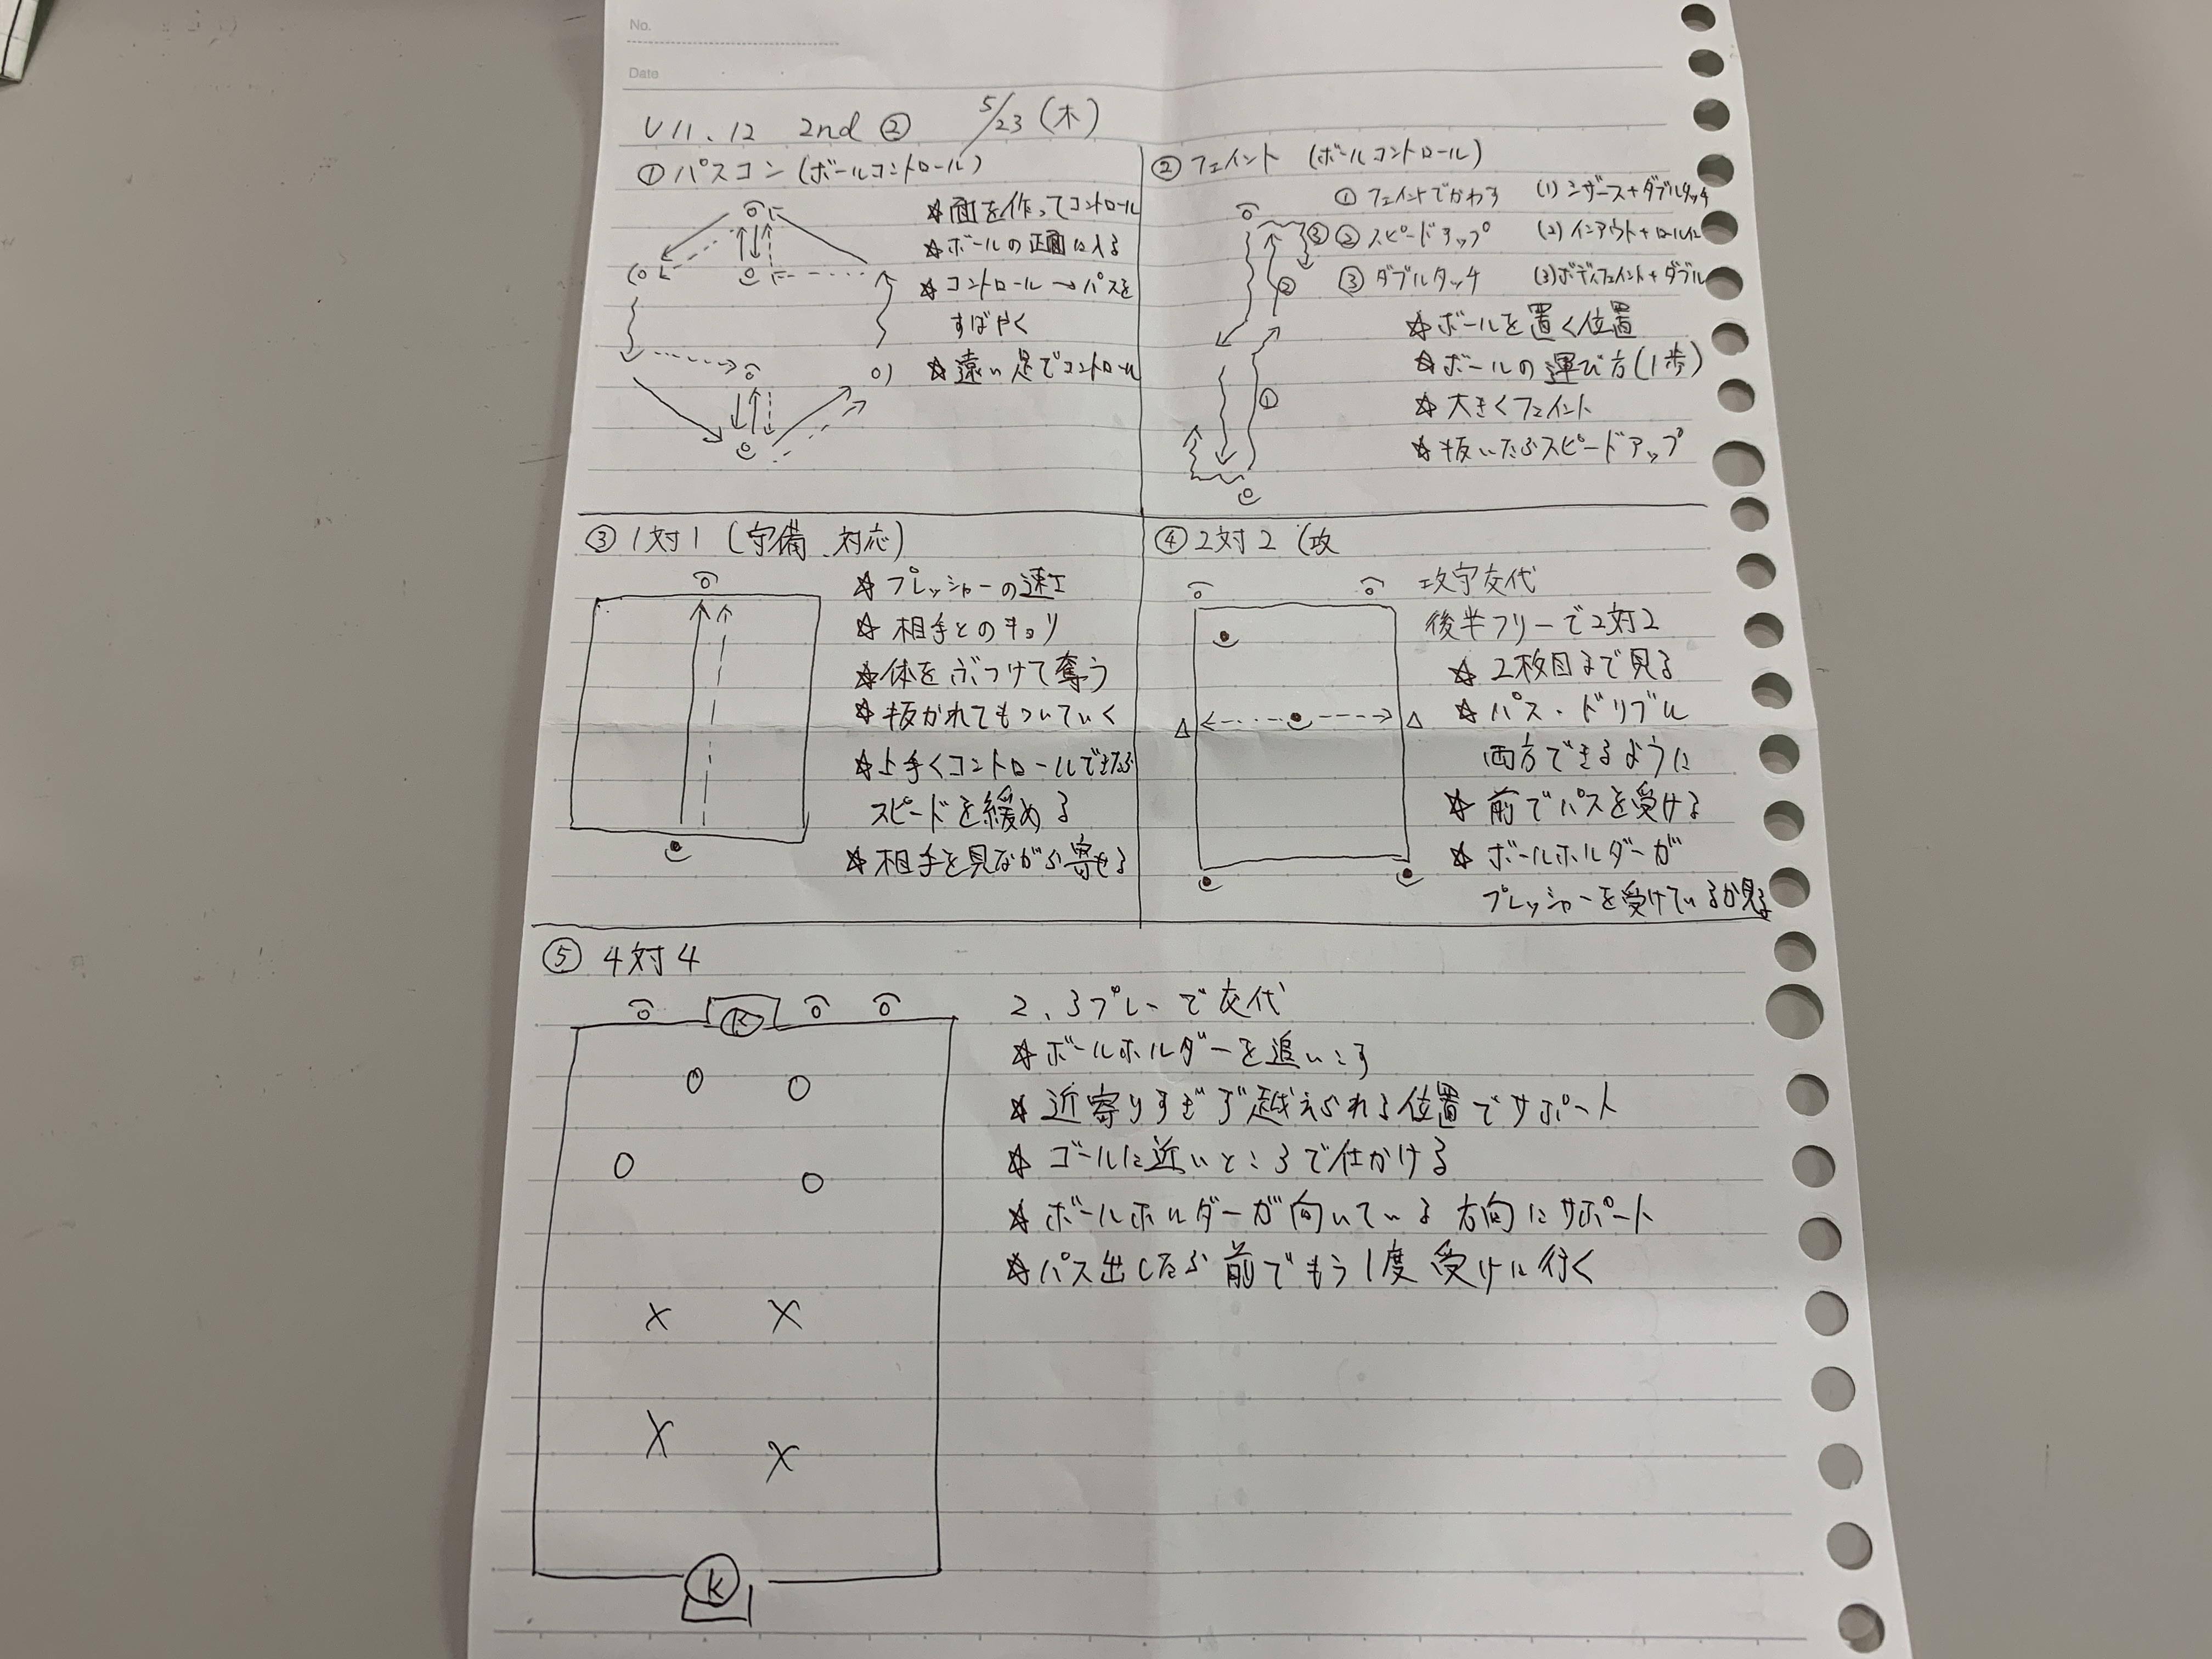 No.
Date
U11、12 2nd ② 5/23 (木)
①パスコン(ボールコントロール)
☆面を作ってコントロール
☆ボールの正面に入る
☆コントロール→パスを
すばやく
☆遠い足でコントロール
②フェイント (ボールコントロール)
① フェイントでかわす (1)シザース+ダブルタッチ
② スピードアップ (2)インアウト+ロール
③ ダブルタッチ (3)ボディフェイント+ダブル
③
②
①
☆ボールを置く位置
☆ボールの運び方(1歩)
☆大きくフェイント
☆抜いたらスピードアップ
③1対1 (守備、対応)
☆プレッシャーの速さ
☆相手とのキョリ
☆体をぶつけて奪う
☆抜かれてもついていく
☆上手くコントロールできたら
スピードを緩める
☆相手を見ながら寄せる
④2対2 (攻
攻守交代
後半フリーで2対2
☆2枚目まで見る
☆パス・ドリブル
両方できるように
☆前でパスを受ける
☆ボールホルダーが
プレッシャーを受けているか見る
⑤ 4対4
K
2、3プレーで交代
☆ボールホルダーを追いこす
☆近寄りすぎず越えられる位置でサポート
☆ゴールに近いところで仕かける
☆ボールホルダーが向いている方向にサポート
☆パス出したら前でもう1度受けに行く
K